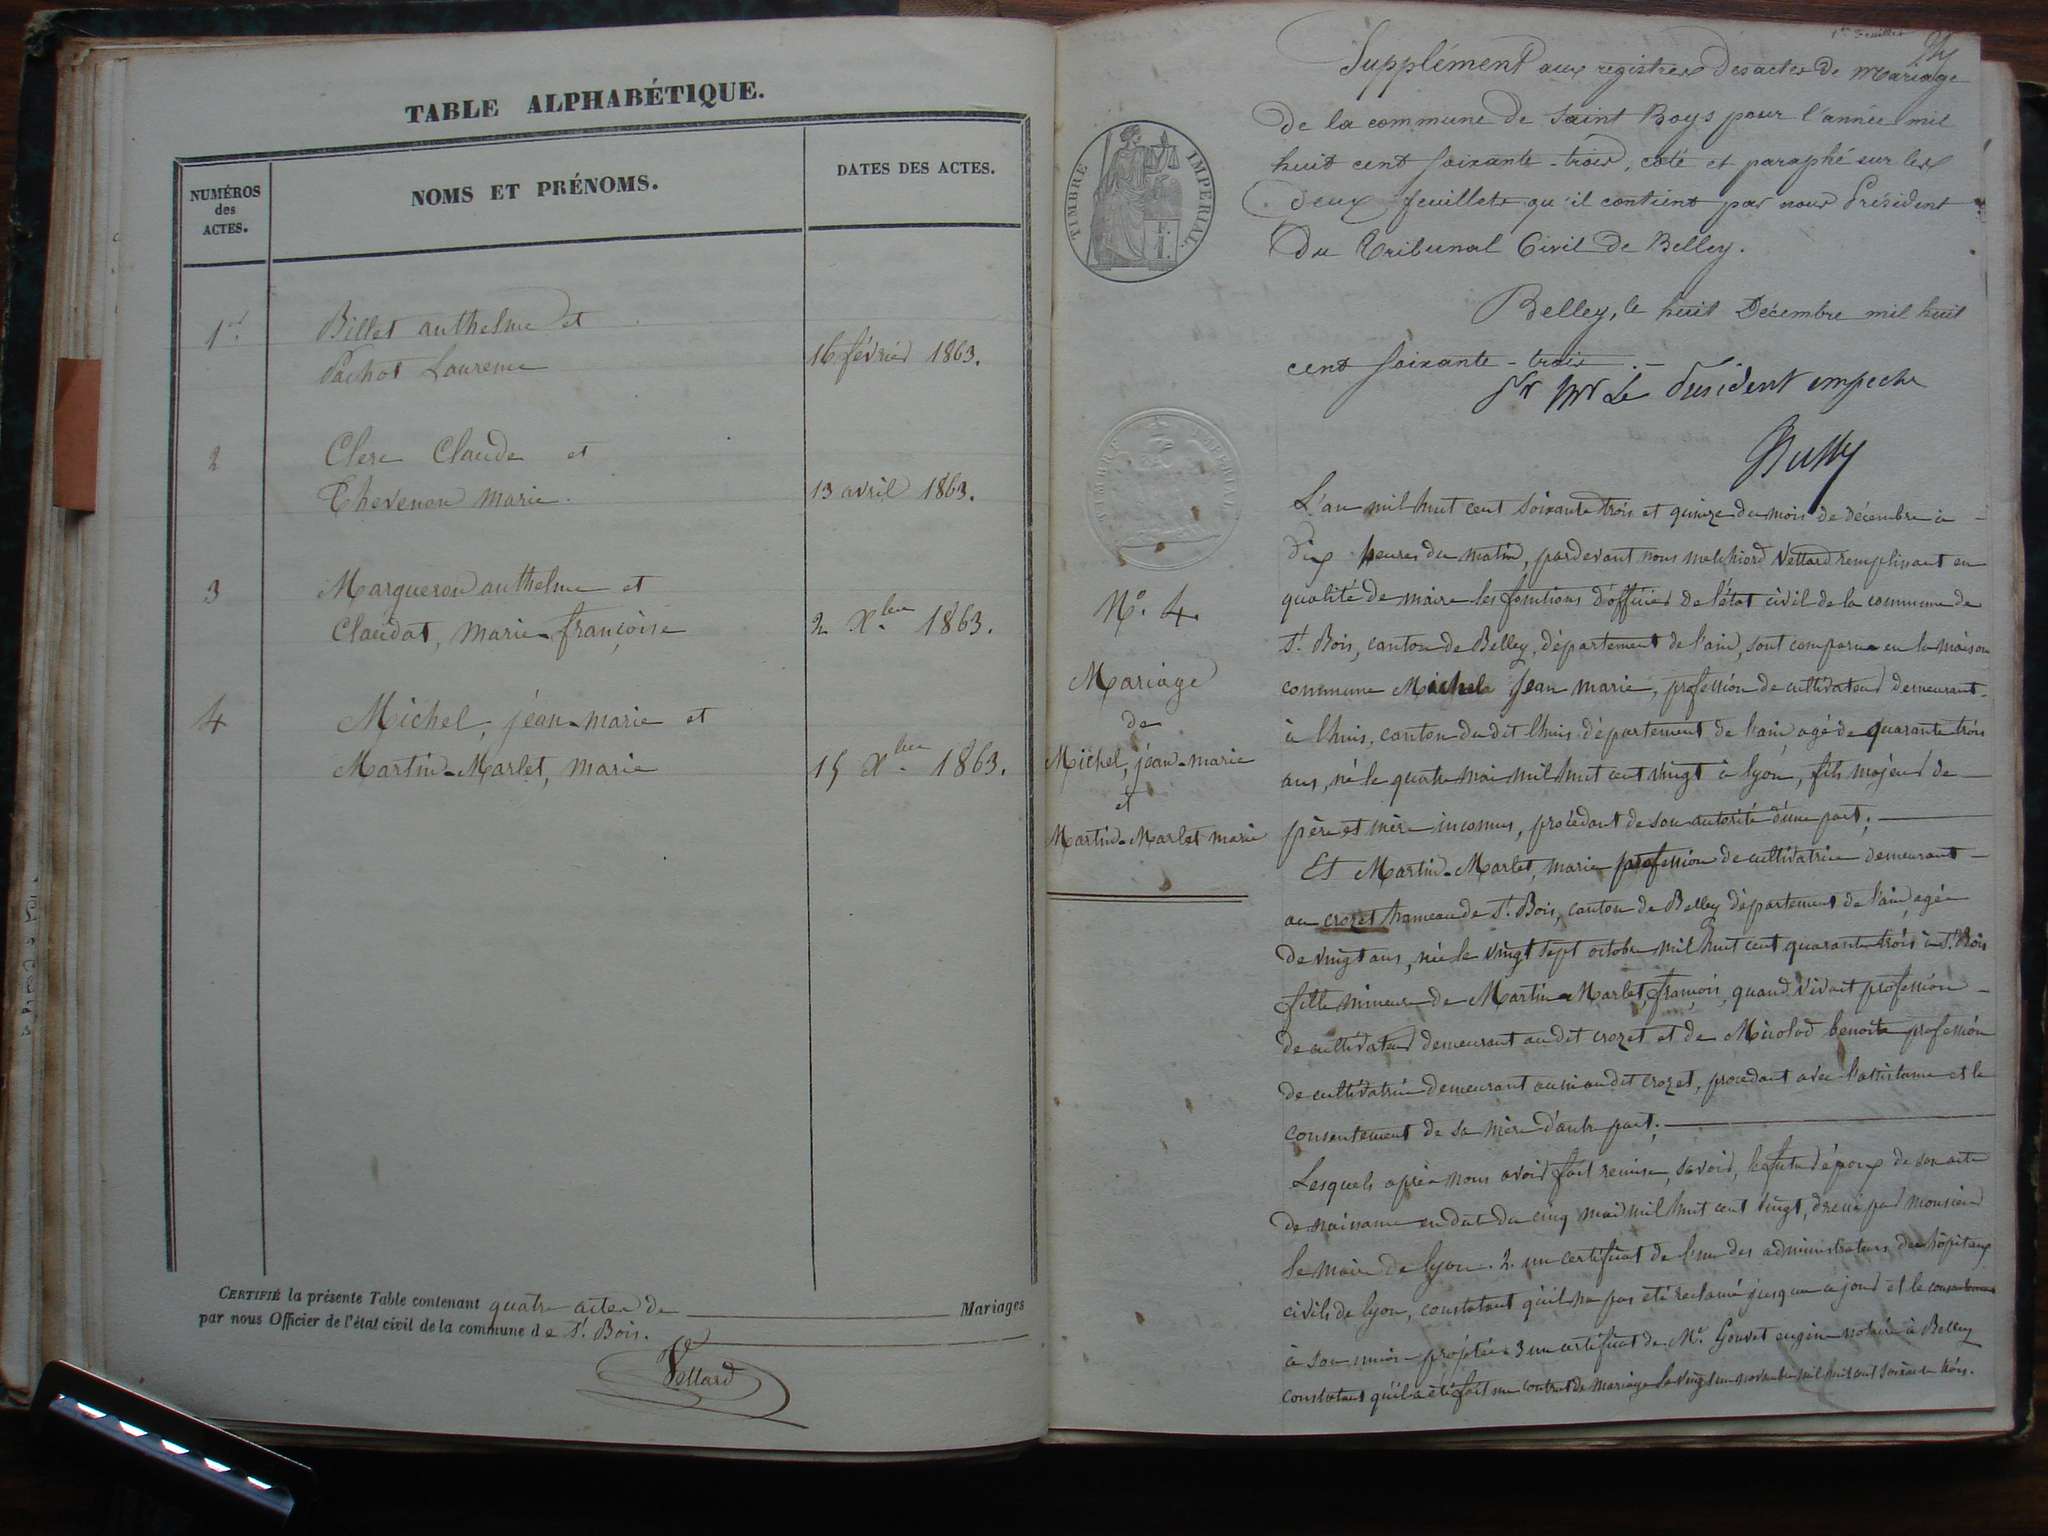 TABLE ALPHABÉTIQUE.
NUMÉROS
des
ACTES.
NOMS ET PRÉNOMS.
DATES DES ACTES.
1er
Billet anthelme et
Pachot Laurence
16 février 1863.
2
Clerc Claude et
Thevenon marie.
13 avril 1863.
3
Margueron anthelme et
Claudat, marie-françoise
2 Xbre 1863.
4
Michel, jéan-marie et
Martin-Marlet, marie
15 Xbre 1863.
CERTIFIÉ la présente Table contenant quatre actes de Mariages
par nous Officier de l'état civil de la commune de St. Bois.
Vettard
1er feuillet
Supplément aux registres des actes de mariage
de la commune de Saint Boys pour l'année mil
huit cent soixante-trois, coté et paraphé sur les
deux feuillets qu'il contient par nous Président
du Tribunal Civil de Belley.
Belley, le huit Décembre mil huit
cent soixante-trois.
Pr Mr Le Président empeché
TIMBRE IMPÉRIAL.
TIMBRE IMPERIAL
N°. 4.
Mariage
de
Michel, jéan-marie
et
Martin-Marlet marie
L'an mil huit cent soixante trois et quinze du mois de décembre à
dix heures du matin, pardevant nous melchiord Vettard remplissant en
qualité de maire les fonctions d'officier de l'état civil de la commune de
St. Bois, canton de Belley, département de l'ain, sont comparus en la maison
commune Michel Jean marie, profession de cultivateur demeurant
à lhuis, canton du dit lhuis département de l'ain agé de quarante trois
ans, né le quatre mai mil huit cent vingt à lyon, fils majeur de
père et mère inconnus, procédant de son autorité d'une part;
Et Martin-Marlet, marie profession de cultivatrice demeurant
au crozet hameau de St. Bois, canton de Belley département de l'ain, agée
de vingt ans, née le vingt sept octobre mil huit cent quarante trois à St. Bois
fille mineure de Martin-Marlet, françois, quand vivait profession
de cultivateur demeurant au dit crozet et de Micolod benoite profession
de cultivatrice demeurant aussi au dit crozet, procédant avec l'assistance et le
consentement de sa mère d'autre part;
Lesquels après nous avoir fait remise, savoir, le futur époux de son acte
de naissance en date du cinq mai mil huit cent vingt, dressé par monsieur
le maire de lyon. 2. un certificat de l'un des administrateurs des hôpitaux
civils de lyon, constatant qu'il n'a pas été réclamé jusqu'à ce jour et le consentement
à son union projetée. 3 un certificat de Me. Gouvet eugène notaire à Belley
constatant qu'il a été fait un contrat de mariage le vingt un novembre mil huit cent soixante trois.